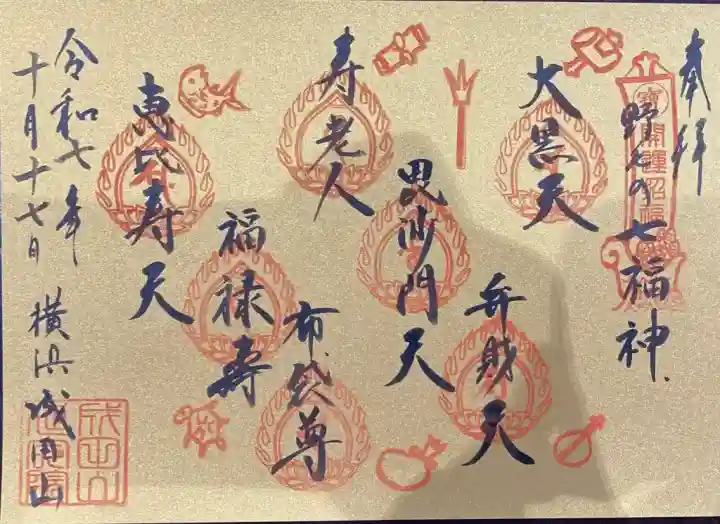 奉拝
野毛の七福神
開運招福
大黒天
弁財天
毘沙門天
寿老人
布袋尊
福禄寿
恵比寿天
令和七年
十月十七日 横浜成田山
成田山